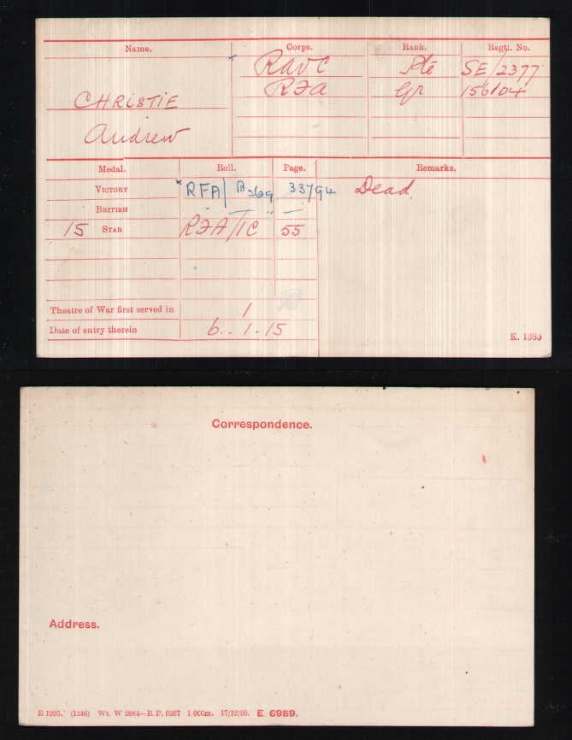 Name. Corps. Rank. Regtl. No.
RAVC Pte SE/2377
CHRISTIE RFA Gr 156104
Andrew
Medal. Roll. Page. Remarks.
VICTORY RFA/ 33794 Dead
BRITISH —"— —
15 STAR RFA/1C 55
Theatre of War first served in 1
Date of entry therein 6.1.15
K. 1380
Correspondence.
Address.
(1246) Wt. W 2884—R.P. 6267 1,000m. E 6989.